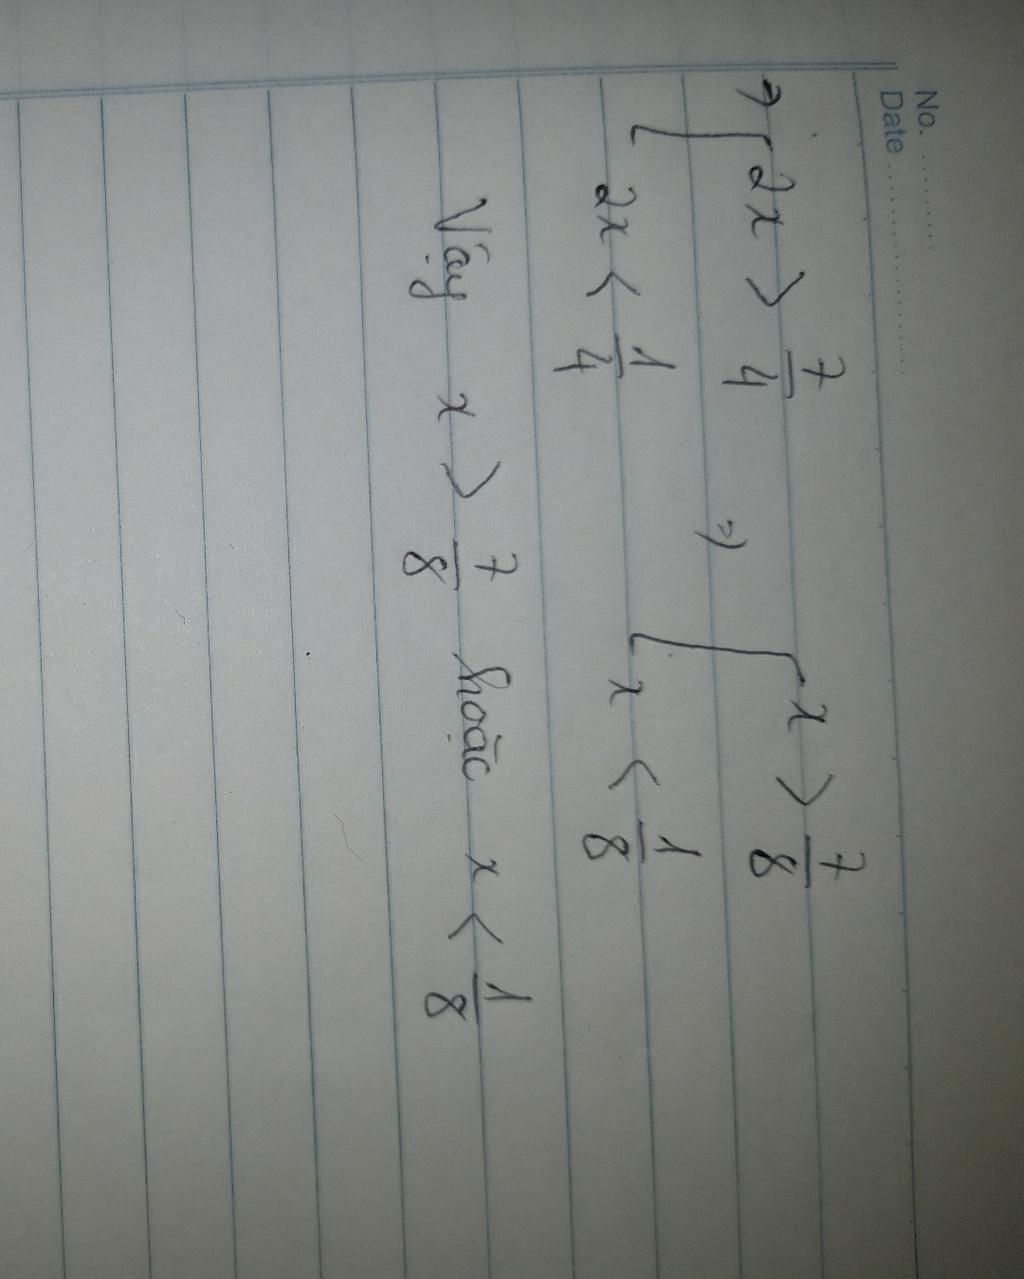 No. ..........
Date .....................
=> [ 2x > 7/4 => [ x > 7/8
2x < 1/4 x < 1/8
Vậy x > 7/8 hoặc x < 1/8